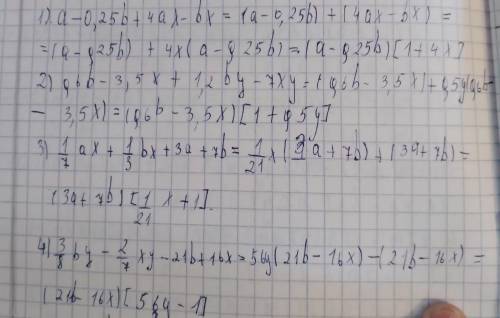 1). a-0,25b+4ax-bx = (a-0,25b)+(4ax-bx) =
=(a-0,25b) + 4x(a-0,25b)=(a-0,25b)[1+4x]
2) 0,6b-3,5x+1,2by-7xy=(0,6b-3,5x)+0,5y(0,6b
-3,5x)=(0,6b-3,5x)[1+0,5y]
3) 1/7 ax+1/3 bx+3a+7b= 1/21 x(3a+7b)+(3a+7b)=
(3a+7b)[1/21 x+1].
4) 3/8 by-2/7 xy-21b+16x=56y(21b-16x)-(21b-16x)=
(21b-16x)[56y-1]